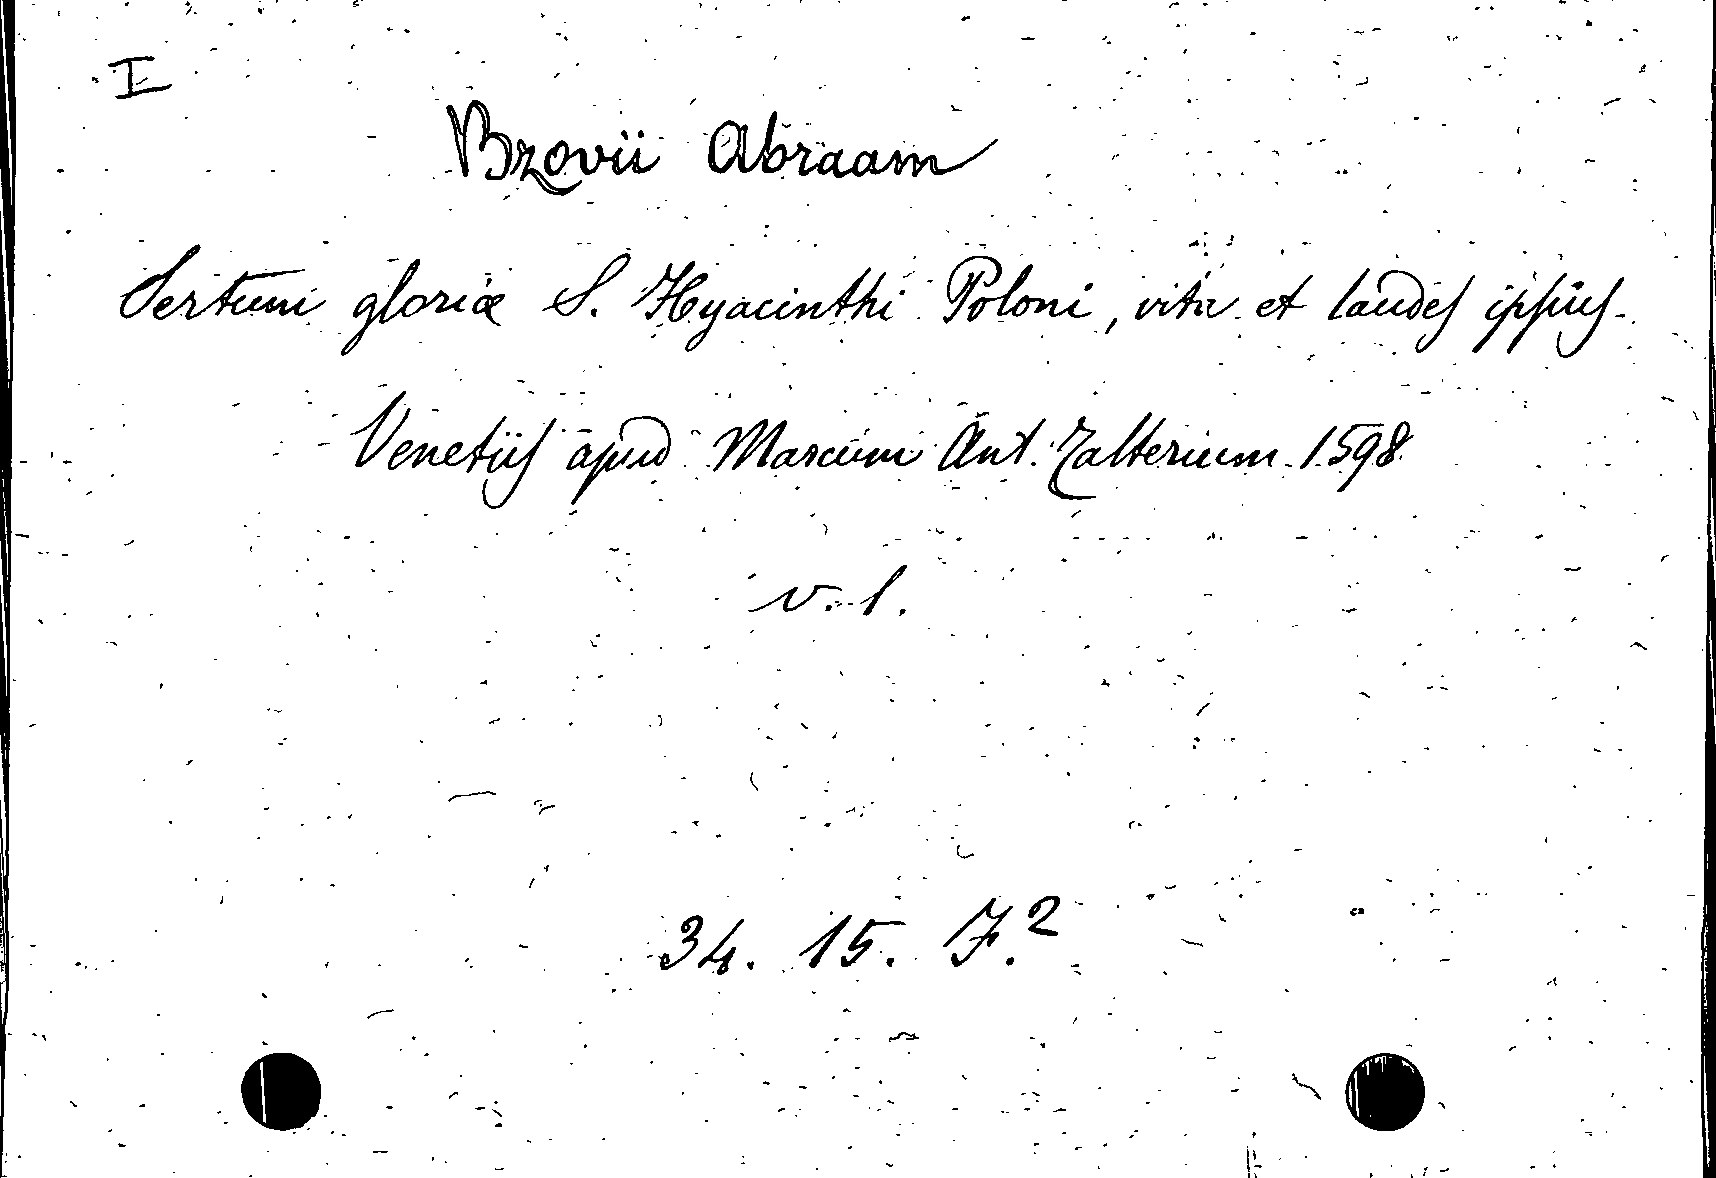 I
Bzovii Abraam
Sertum gloriæ S. Hyacinthi Poloni, vita et laudes ipsius.
Venetiis apud Marcum Ant. Zalterium 1598
v. 1.
34. 15. F.²